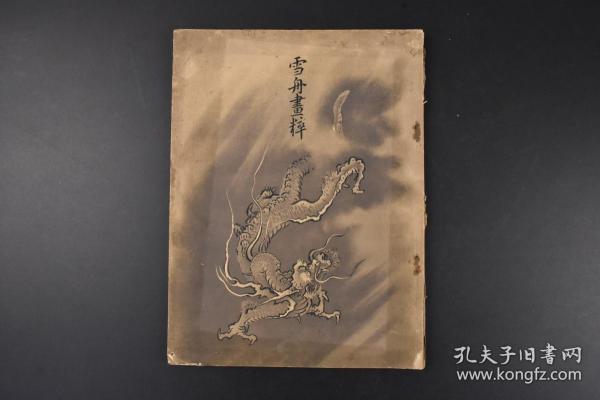 雪舟畫粹
孔夫子旧書网
www.kongfz.com